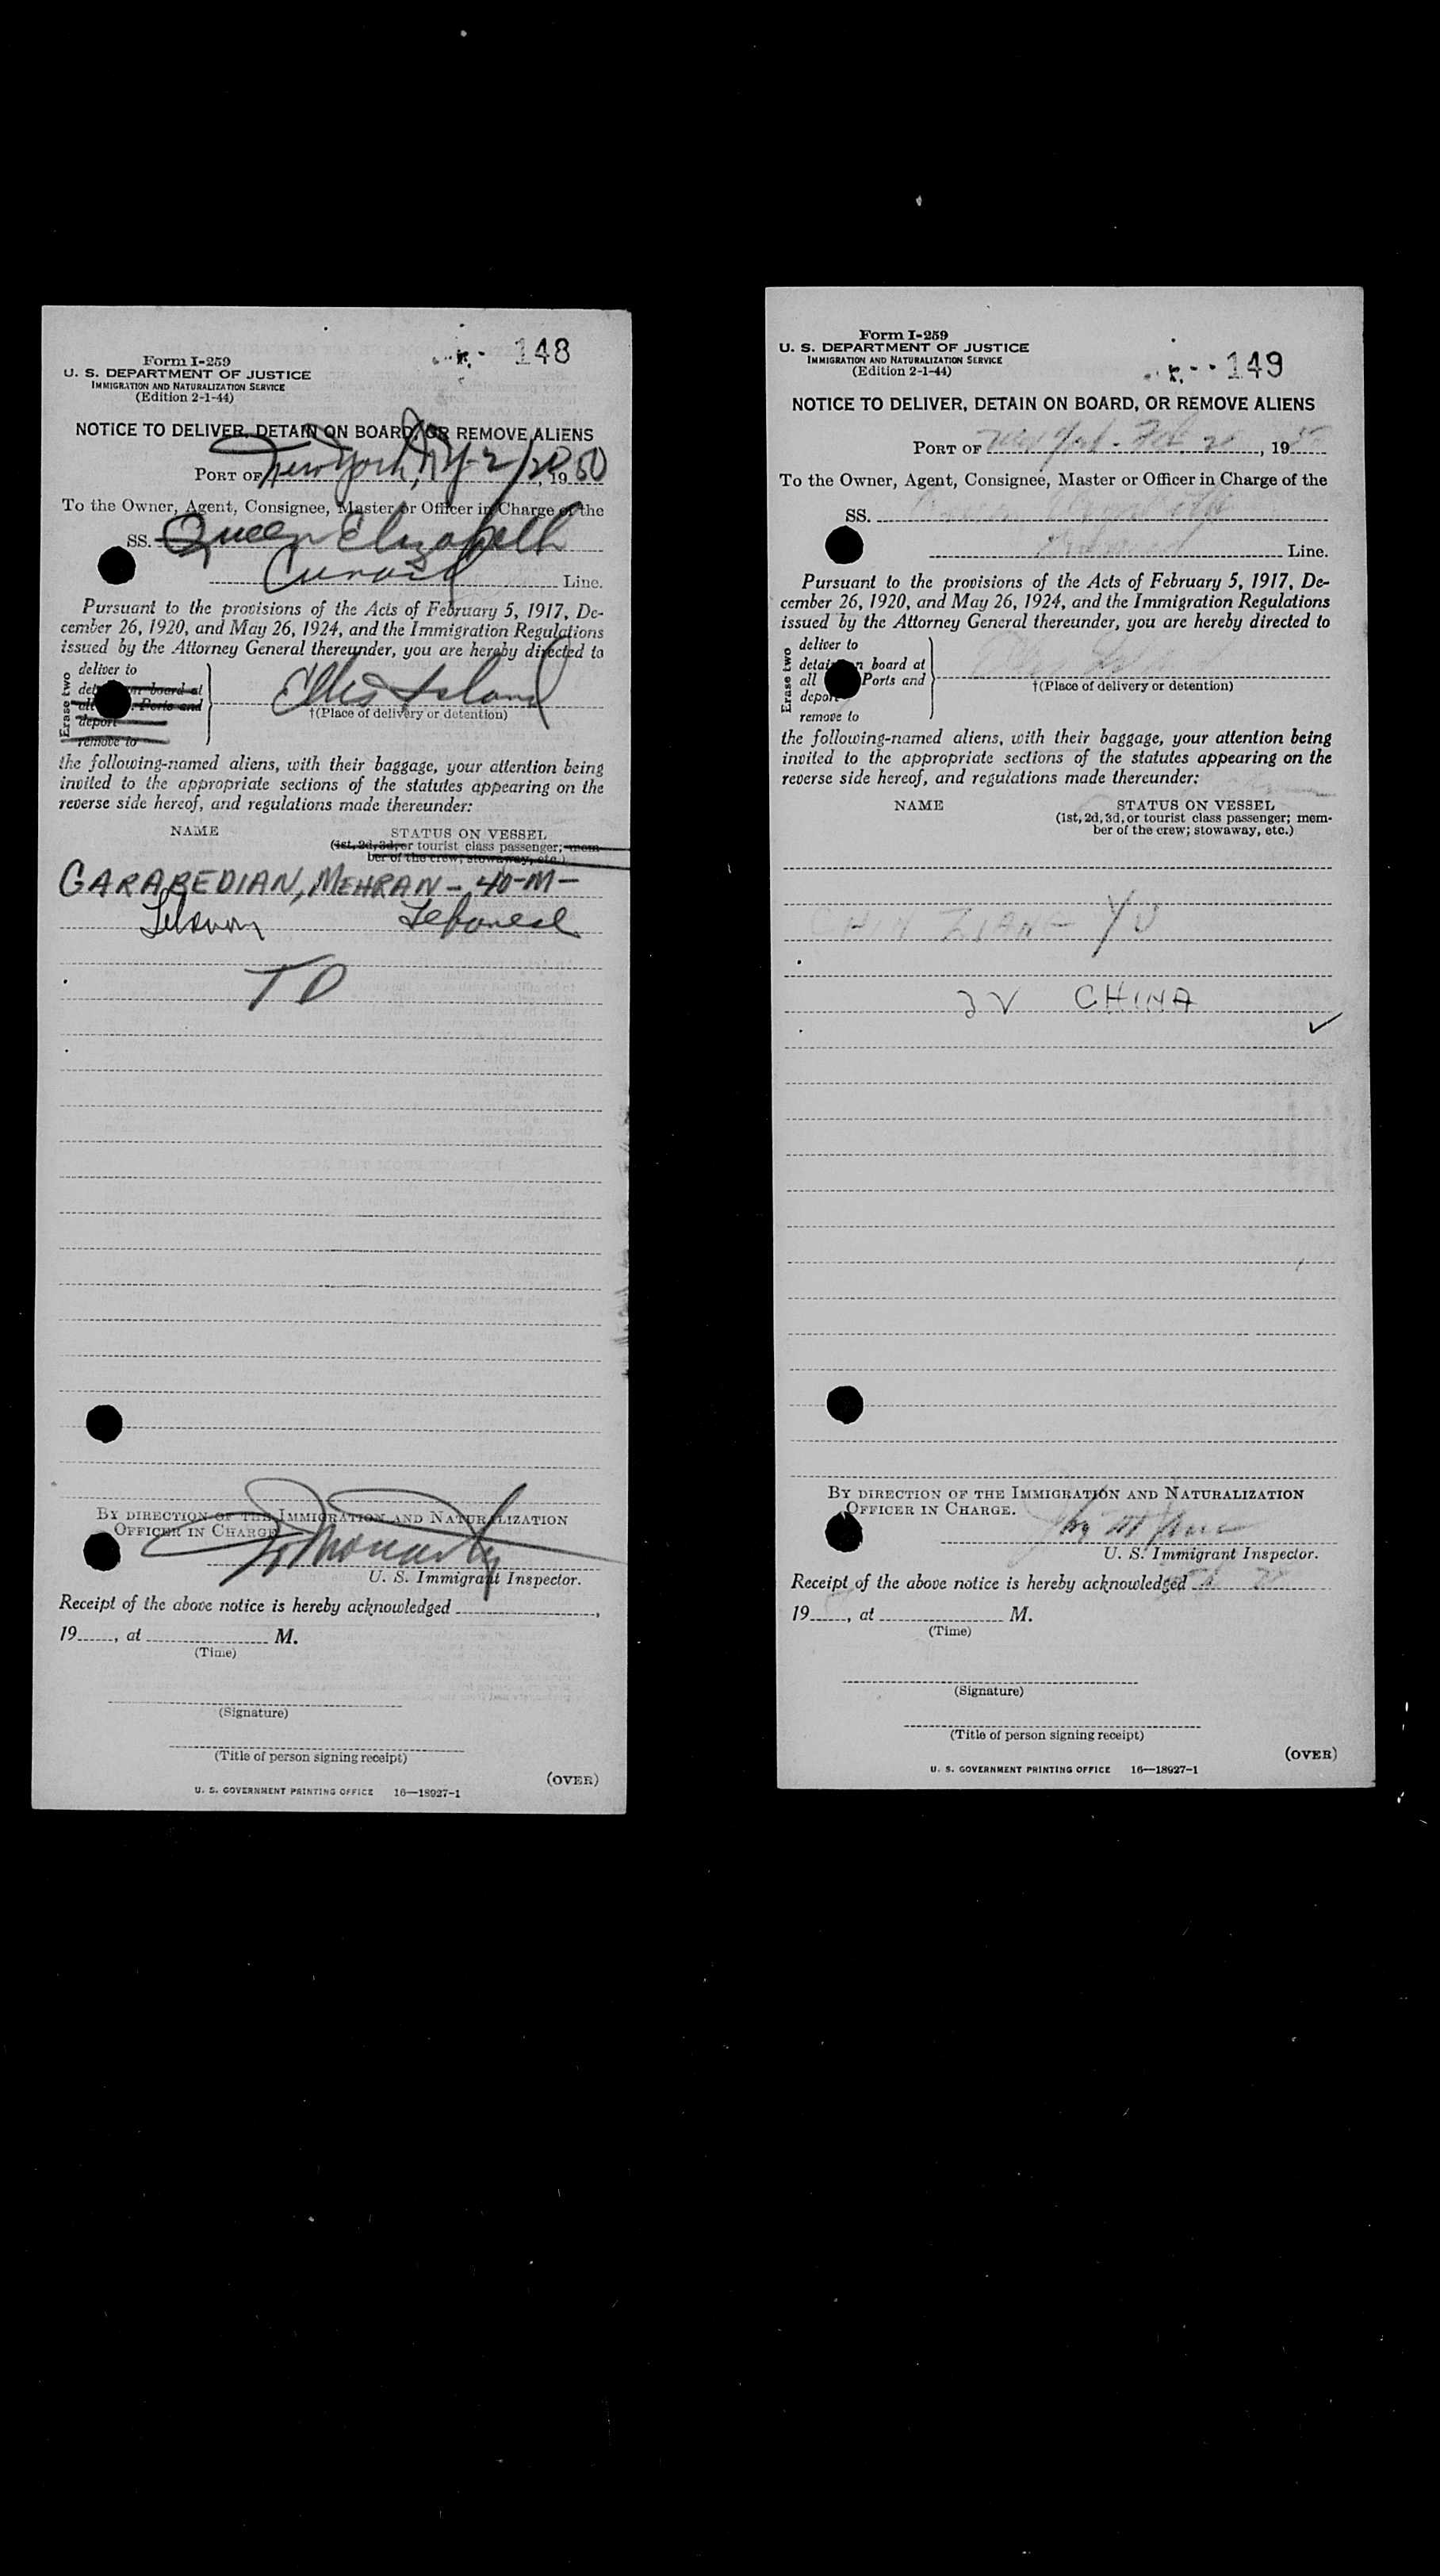 148
Form I-259
U. S. DEPARTMENT OF JUSTICE
IMMIGRATION AND NATURALIZATION SERVICE
(Edition 2-1-44)
NOTICE TO DELIVER, DETAIN ON BOARD, OR REMOVE ALIENS
PORT OF New York, NY 2/20, 1950
To the Owner, Agent, Consignee, Master or Officer in Charge of the
SS. Queen Elizabeth
Cunard Line.
Pursuant to the provisions of the Acts of February 5, 1917, De-
cember 26, 1920, and May 26, 1924, and the Immigration Regulations
issued by the Attorney General thereunder, you are hereby directed to
Erase two
deliver to
on board at
all Ports and
deport
remove to
Ellis Island
†(Place of delivery or detention)
the following-named aliens, with their baggage, your attention being
invited to the appropriate sections of the statutes appearing on the
reverse side hereof, and regulations made thereunder:
NAME STATUS ON VESSEL
(1st, 2d, 3d, or tourist class passenger; mem-
ber of the crew; stowaway, etc.)
GARABEDIAN, MEHRAN - 40-M-
Lebanon Lebanese
TD
BY DIRECTION OF THE IMMIGRATION AND NATURALIZATION
OFFICER IN CHARGE
U. S. Immigrant Inspector.
Receipt of the above notice is hereby acknowledged
19, at M.
(Time)
(Signature)
(Title of person signing receipt)
(OVER)
U. S. GOVERNMENT PRINTING OFFICE 16—18927-1
Form I-259
U. S. DEPARTMENT OF JUSTICE
IMMIGRATION AND NATURALIZATION SERVICE
(Edition 2-1-44)
149
NOTICE TO DELIVER, DETAIN ON BOARD, OR REMOVE ALIENS
PORT OF New York - Feb. 20, 1950
To the Owner, Agent, Consignee, Master or Officer in Charge of the
SS.
Line.
Pursuant to the provisions of the Acts of February 5, 1917, De-
cember 26, 1920, and May 26, 1924, and the Immigration Regulations
issued by the Attorney General thereunder, you are hereby directed to
Erase two
deliver to
detain on board at
all Ports and
deport
remove to
Ellis Island
†(Place of delivery or detention)
the following-named aliens, with their baggage, your attention being
invited to the appropriate sections of the statutes appearing on the
reverse side hereof, and regulations made thereunder:
NAME STATUS ON VESSEL
(1st, 2d, 3d, or tourist class passenger; mem-
ber of the crew; stowaway, etc.)
CHIN LIANG YU
CHINA
BY DIRECTION OF THE IMMIGRATION AND NATURALIZATION
OFFICER IN CHARGE.
U. S. Immigrant Inspector.
Receipt of the above notice is hereby acknowledged
19, at M.
(Time)
(Signature)
(Title of person signing receipt)
(OVER)
U. S. GOVERNMENT PRINTING OFFICE 16—18927-1